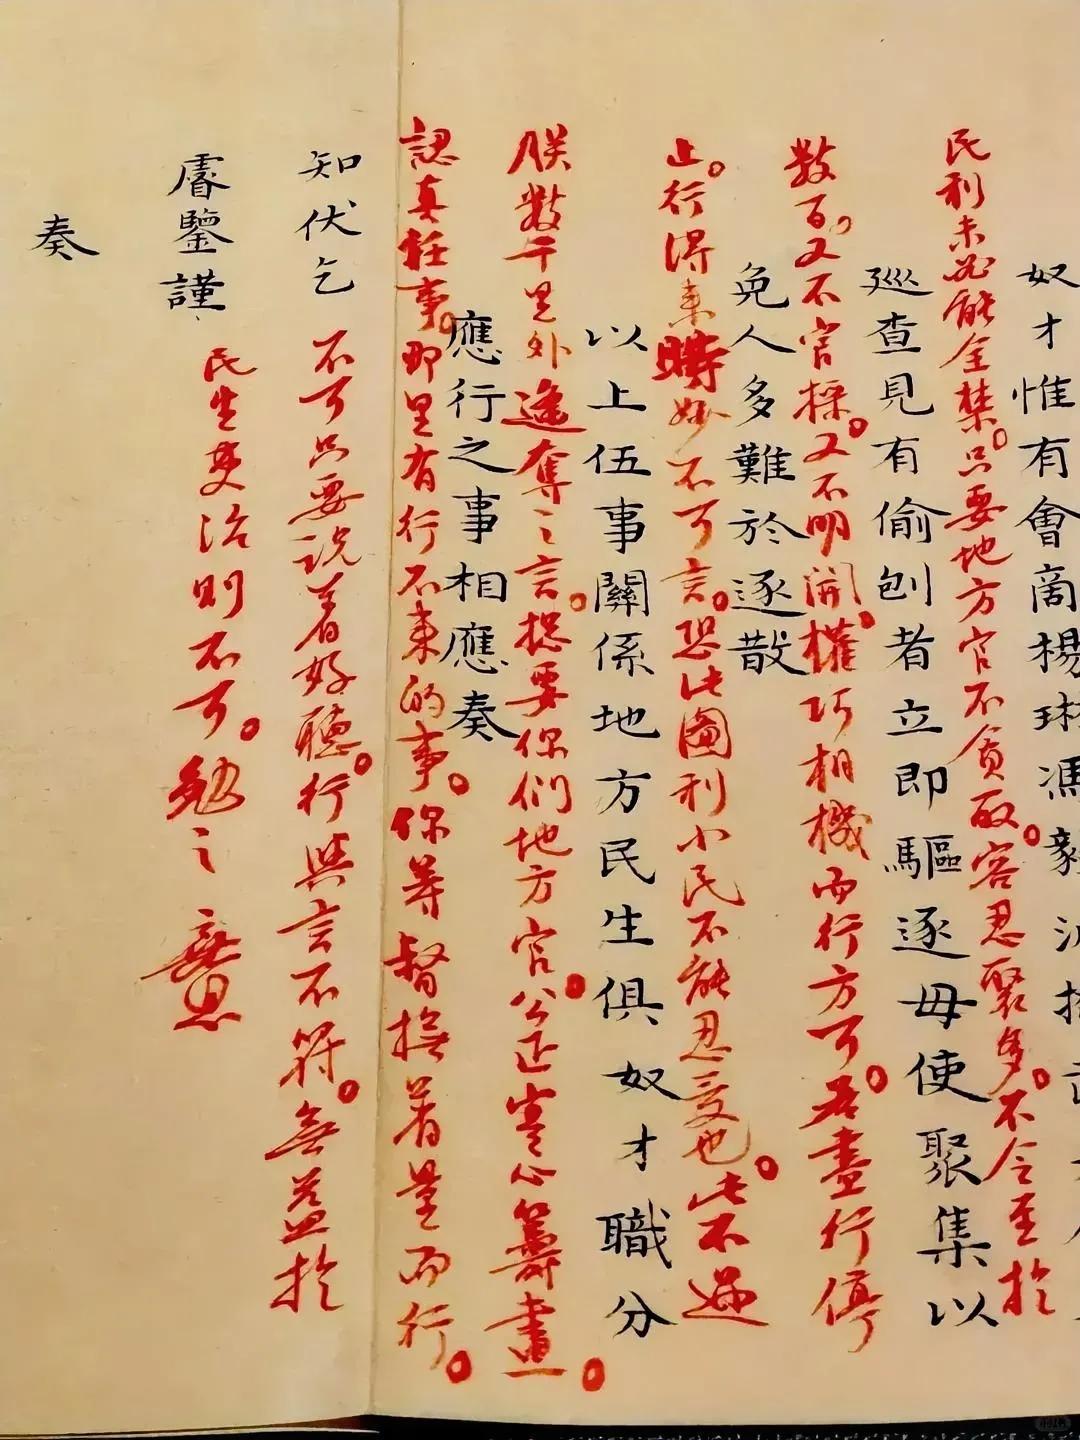 奴才惟有會商楊琳馮毅派撥
民利未必能全禁。只要地方官不貪取。容忍聚多。不令至於
巡查見有偷刨者立即驅逐毋使聚集以
數百。又不官採。又不明開。權巧相機而行方可。若盡行停
免人多難於逐散
止。行得來時妙不可言。恐此圖利小民不能忍受也。此不過
以上伍事關係地方民生俱奴才職分
朕數千里外遙奪之言。總要你們地方官。公正寔心籌畫。
應行之事相應奏
認真任事。那里有行不來的事。你等督撫着量而行。
知伏乞
不可只要說着好聽。行與言不符。無益於
睿鑒謹
民生吏治則不可。勉之
奏